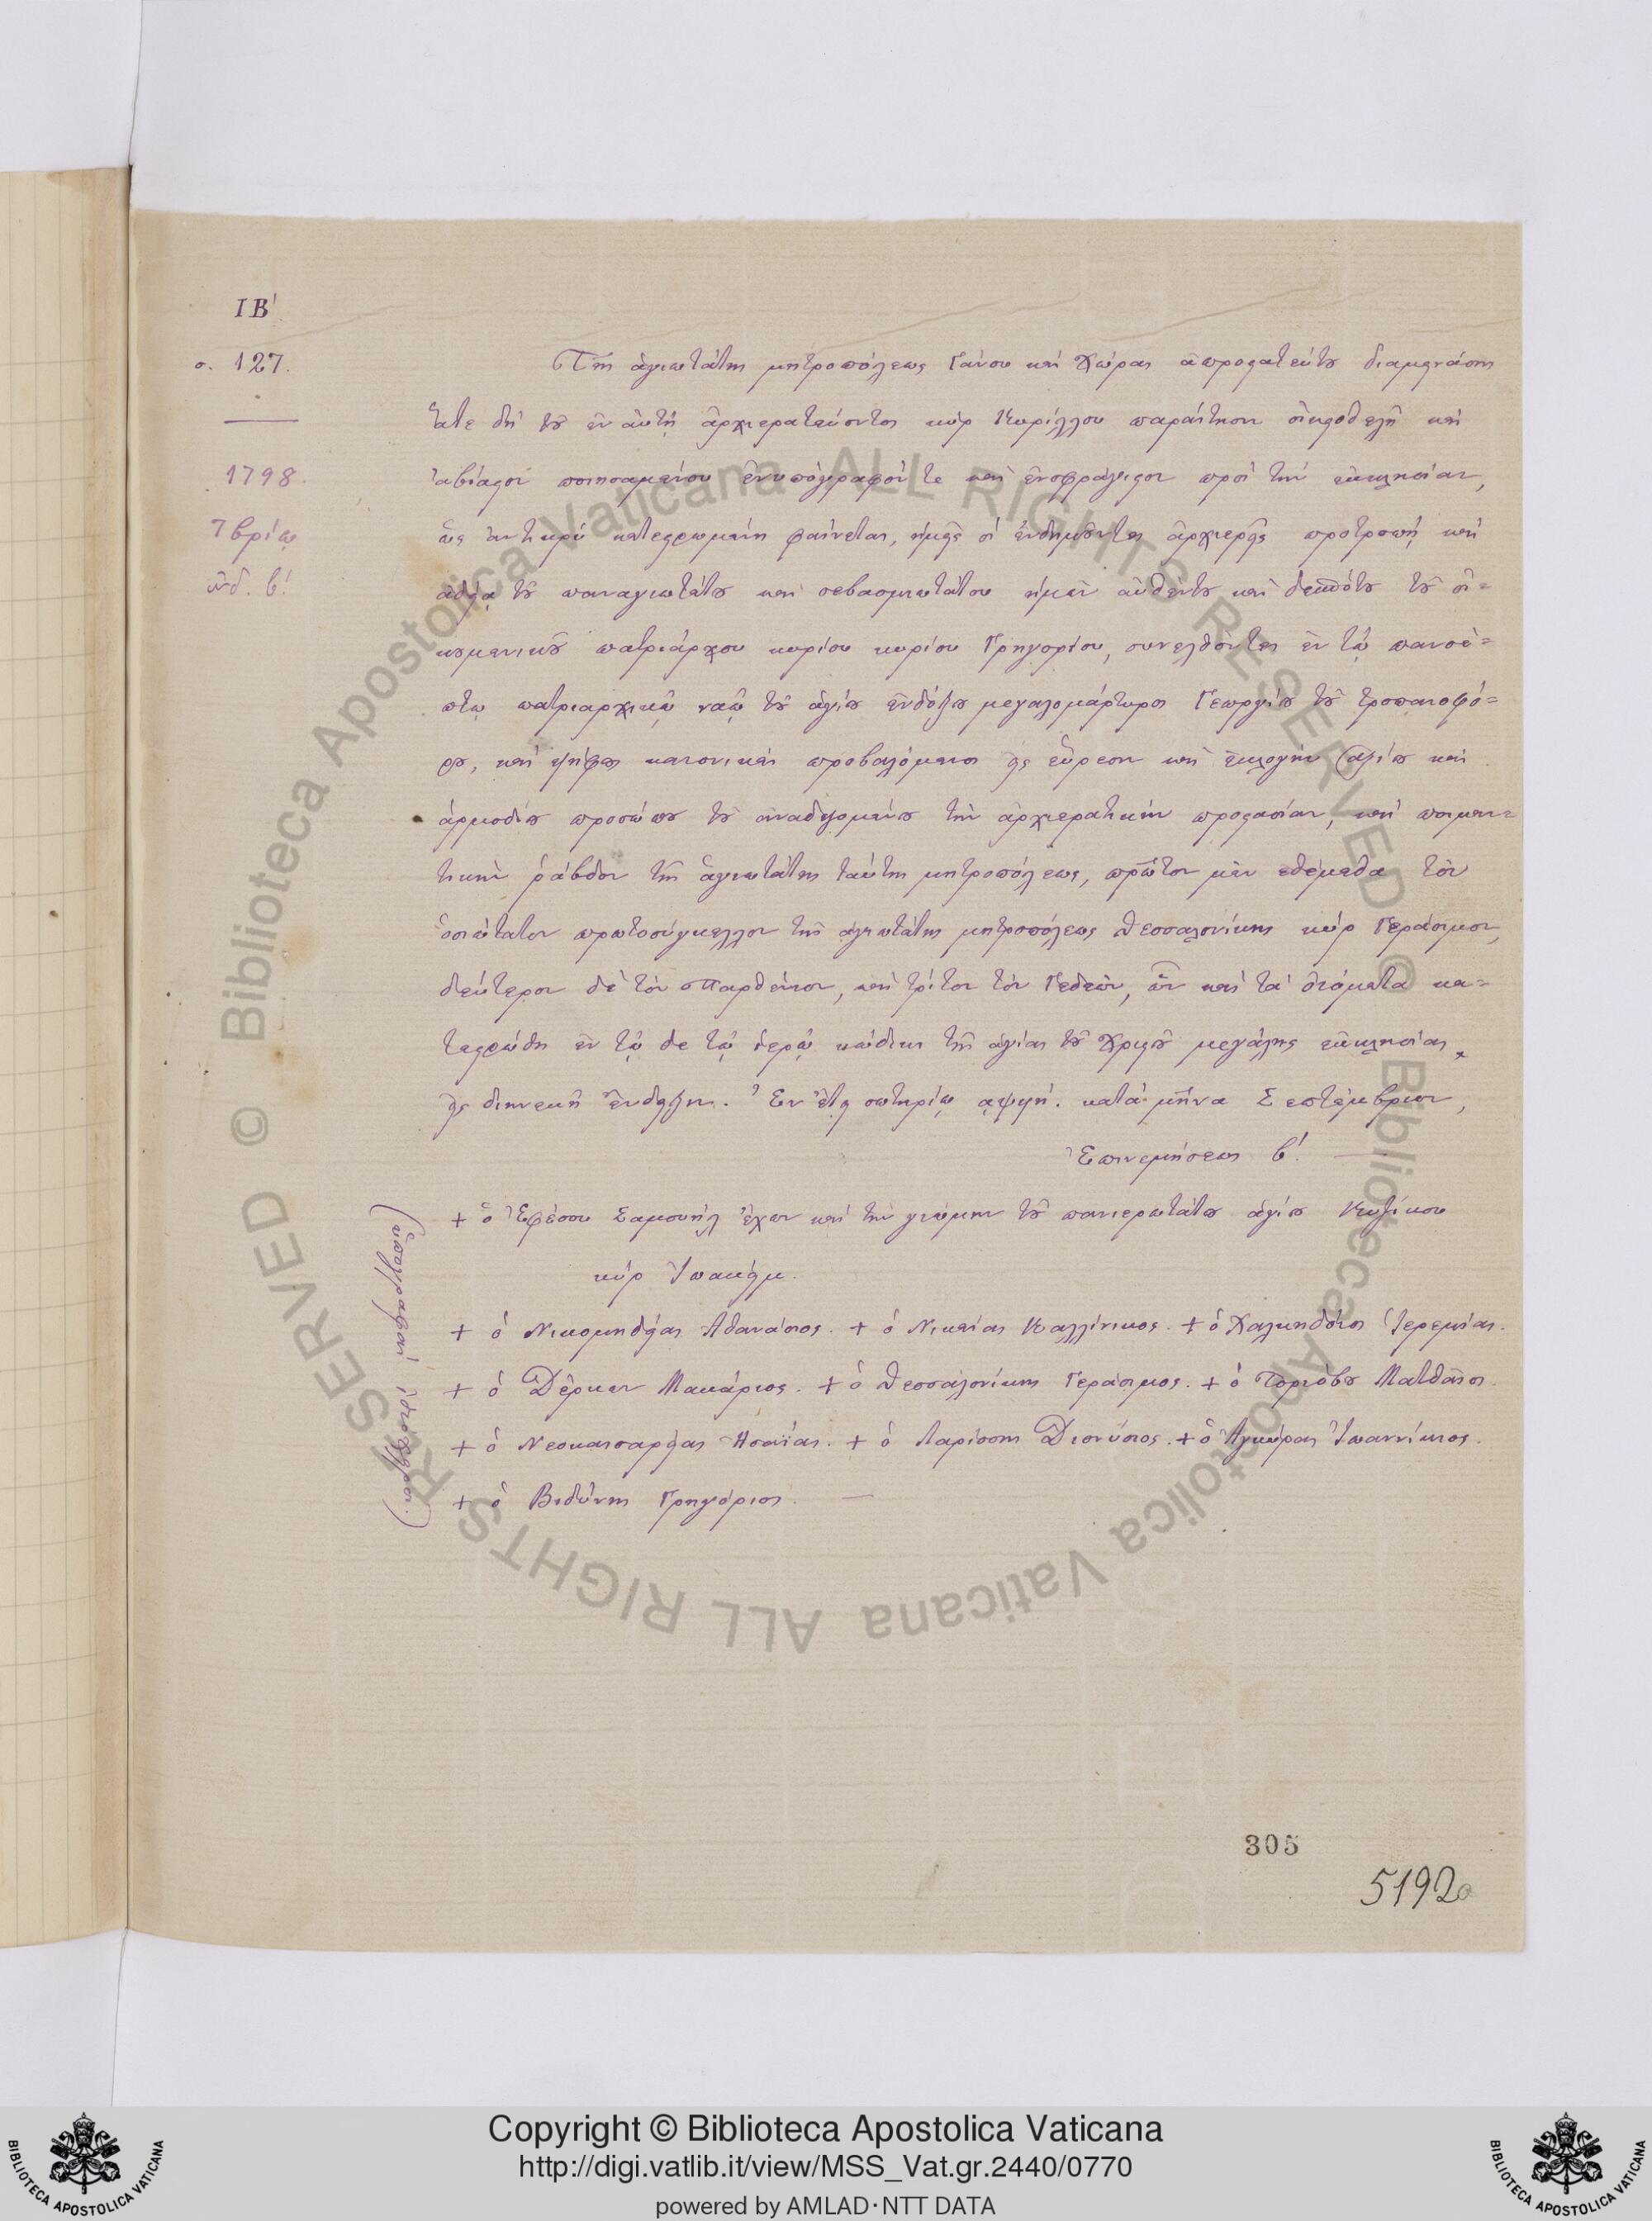 ΙΒ΄
σ. 127.
1798.
7βρίῳ
ἰνδ. β΄.
Τῆς ἁγιωτάτης μητροπόλεως Γάνου καὶ Χώρας ἀπροστατεύτου διαμεινάσης
ἅτε δὴ τοῦ ἐν αὐτῇ ἀρχιερατεύοντος κὺρ Κυρίλλου παραίτησιν οἰκειοθελῆ καὶ
ἀβίαστον ποιησαμένου ἐνυπόγραφόν τε καὶ ἐνσφράγιστον πρὸς τὴν ἐκκλησίαν,
ὡς ἀντικρὺ κατεστρωμένη φαίνεται, ἡμεῖς οἱ ἐνδημοῦντες ἀρχιερεῖς προτροπῇ καὶ
ἀδείᾳ τοῦ παναγιωτάτου καὶ σεβασμιωτάτου ἡμῶν αὐθέντου καὶ δεσπότου τοῦ οἰ=
κουμενικοῦ πατριάρχου κυρίου κυρίου Γρηγορίου, συνελθόντες ἐν τῷ πανσέ=
πτῳ πατριαρχικῷ ναῷ τοῦ ἁγίου ἐνδόξου μεγαλομάρτυρος Γεωργίου τοῦ τροπαιοφό=
ρου, καὶ ψήφους κανονικὰς προβαλόμενοι εἰς εὕρεσιν καὶ ἐκλογὴν ἀξίου καὶ
ἁρμοδίου προσώπου τοῦ ἀναδεξομένου τὴν ἀρχιερατικὴν προστασίαν, καὶ ποιμαν=
τικὴν ῥάβδον τῆς ἁγιωτάτης ταύτης μητροπόλεως, πρῶτον μὲν ἐθέμεθα τὸν
ὁσιώτατον πρωτοσύγκελλον τῆς ἁγιωτάτης μητροπόλεως Θεσσαλονίκης κὺρ Γεράσιμον,
δεύτερον δὲ τὸν Παρθένιον, καὶ τρίτον τὸν Γεδεών, ὧν καὶ τὰ ὀνόματα κα=
τεστρώθη ἐν τῷδε τῷ ἱερῷ κώδικι τῆς ἁγίας τοῦ Χριστοῦ μεγάλης ἐκκλησίας,
εἰς διηνεκῆ ἔνδειξιν. Ἐν ἔτει σωτηρίῳ ͵αψϟή. κατὰ μῆνα Σεπτέμβριον,
Ἐπινεμήσεως β΄. —
(ὑπογραφαὶ ἰδιόχειροι.)
+ ὁ Ἐφέσου Σαμουὴλ ἔχων καὶ τὴν γνώμην τοῦ πανιερωτάτου ἁγίου Κυζίκου
κὺρ Ἰωακείμ.
+ ὁ Νικομηδείας Ἀθανάσιος. + ὁ Νικαίας Καλλίνικος. + ὁ Χαλκηδόνος Ἱερεμίας.
+ ὁ Δέρκων Μακάριος. + ὁ Θεσσαλονίκης Γεράσιμος. + ὁ Τορνόβου Ματθαῖος.
+ ὁ Νεοκαισαρείας Ἡσαΐας. + ὁ Λαρίσσης Διονύσιος. + ὁ Ἀγκύρας Ἰωαννίκιος.
+ ὁ Βιδύνης Γρηγόριος. —
305
5192
Copyright © Biblioteca Apostolica Vaticana
http://digi.vatlib.it/view/MSS_Vat.gr.2440/0770
powered by AMLAD·NTT DATA